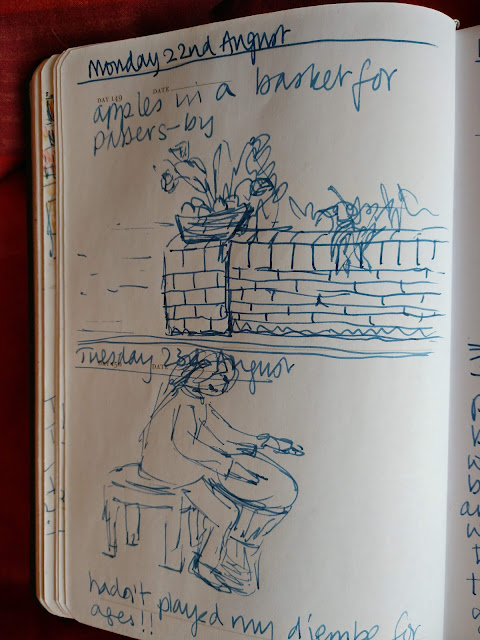 Monday 22nd August
DAY 149 DATE
apples in a basket for
passers-by
Tuesday 23rd August
DATE
hadn't played my djembe for
ages!!